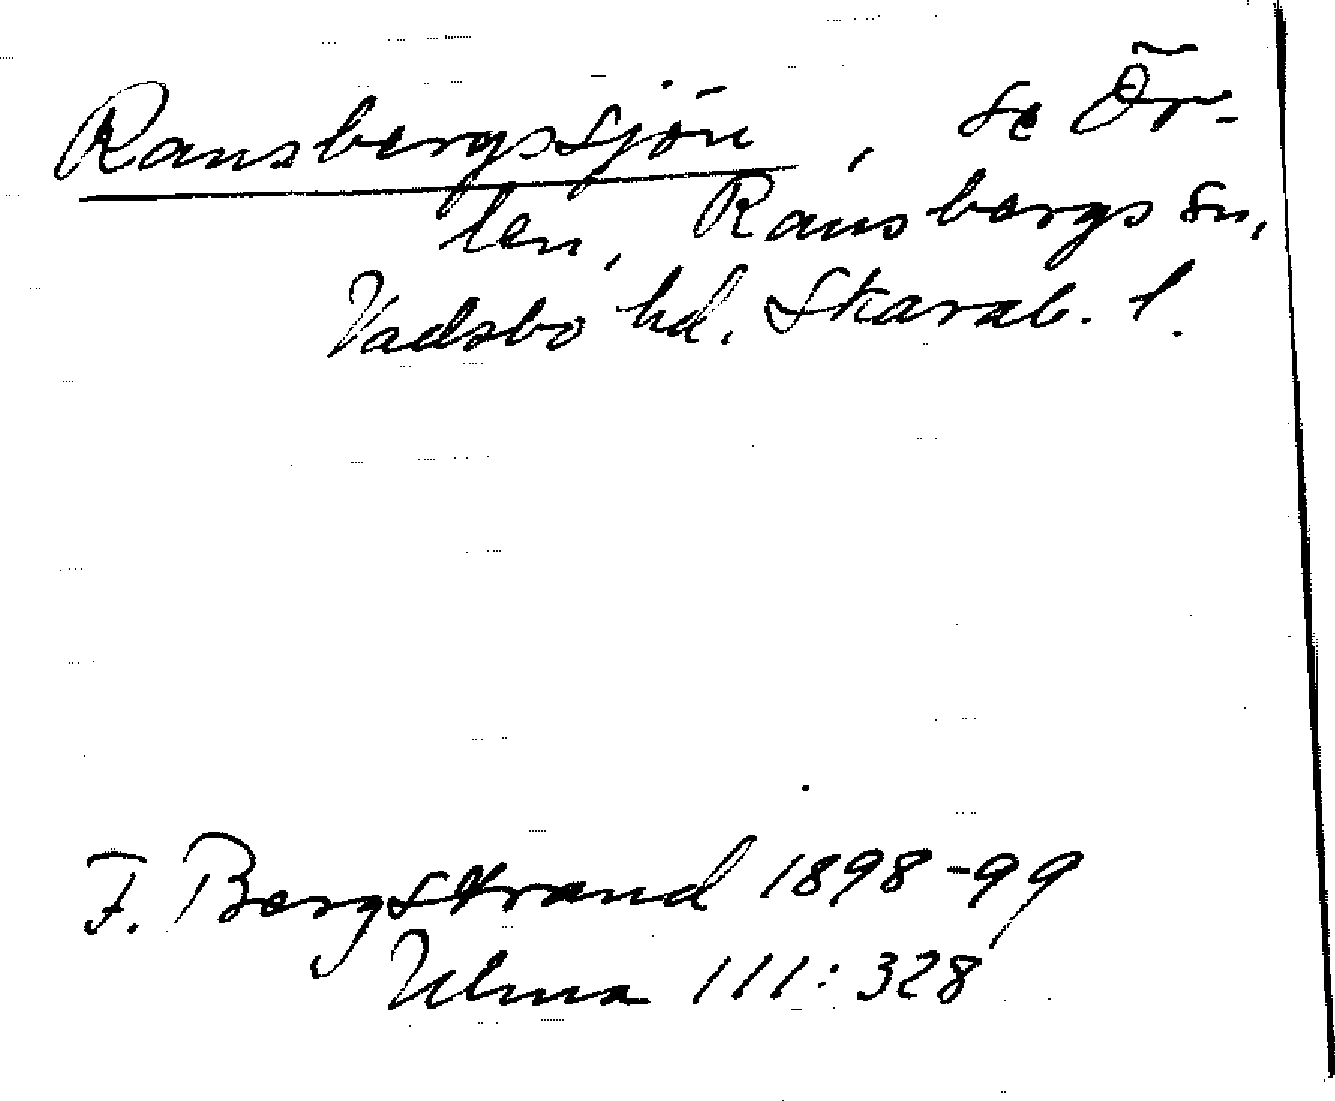 Ransbergssjön, se Ör-
ten, Ransbergs sn,
Vadsbo hd. Skarab. l.
F. Bergstrand 1898-99
Ulma 111:328